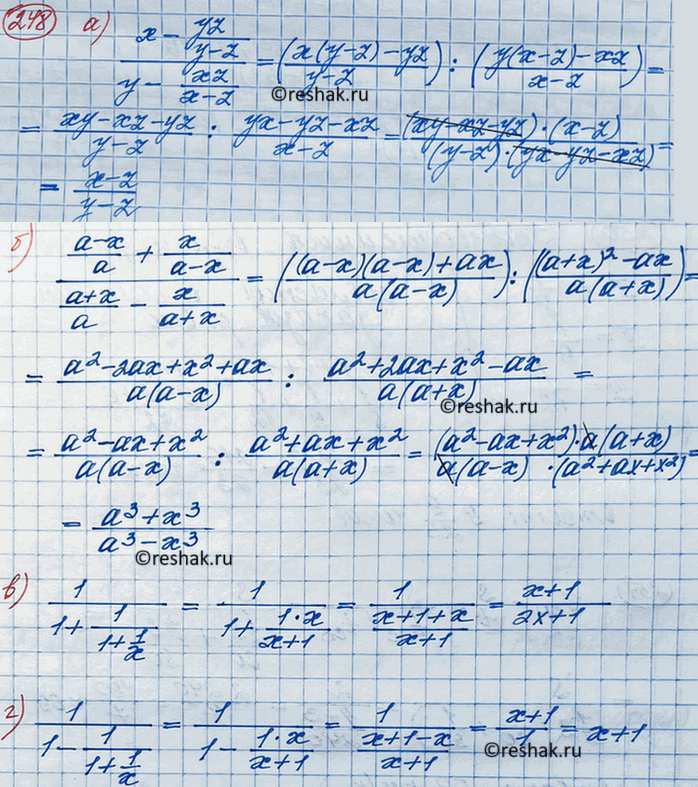 248 а) (x - yz/(y-z)) / (y - xz/(x-z)) = (x(y-z)-yz / y-z) : (y(x-z)-xz / x-z) =
©reshak.ru
= xy-xz-yz / y-z : yx-yz-xz / x-z = (xy-xz-yz)·(x-z) / (y-z)·(yx-yz-xz) =
= x-z / y-z
б) ((a-x)/a + x/(a-x)) / ((a+x)/a - x/(a+x)) = ((a-x)(a-x)+ax / a(a-x)) : ((a+x)²-ax / a(a+x)) =
= a²-2ax+x²+ax / a(a-x) : a²+2ax+x²-ax / a(a+x) =
©reshak.ru
= a²-ax+x² / a(a-x) : a²+ax+x² / a(a+x) = (a²-ax+x²)·a(a+x) / a(a-x)·(a²+ax+x²) =
= a³+x³ / a³-x³
©reshak.ru
в) 1 / (1+ 1/(1+ 1/x)) = 1 / (1+ 1·x/(x+1)) = 1 / ((x+1+x)/(x+1)) = x+1 / 2x+1
г) 1 / (1- 1/(1+ 1/x)) = 1 / (1- 1·x/(x+1)) = 1 / ((x+1-x)/(x+1)) = x+1 / 1 = x+1
©reshak.ru